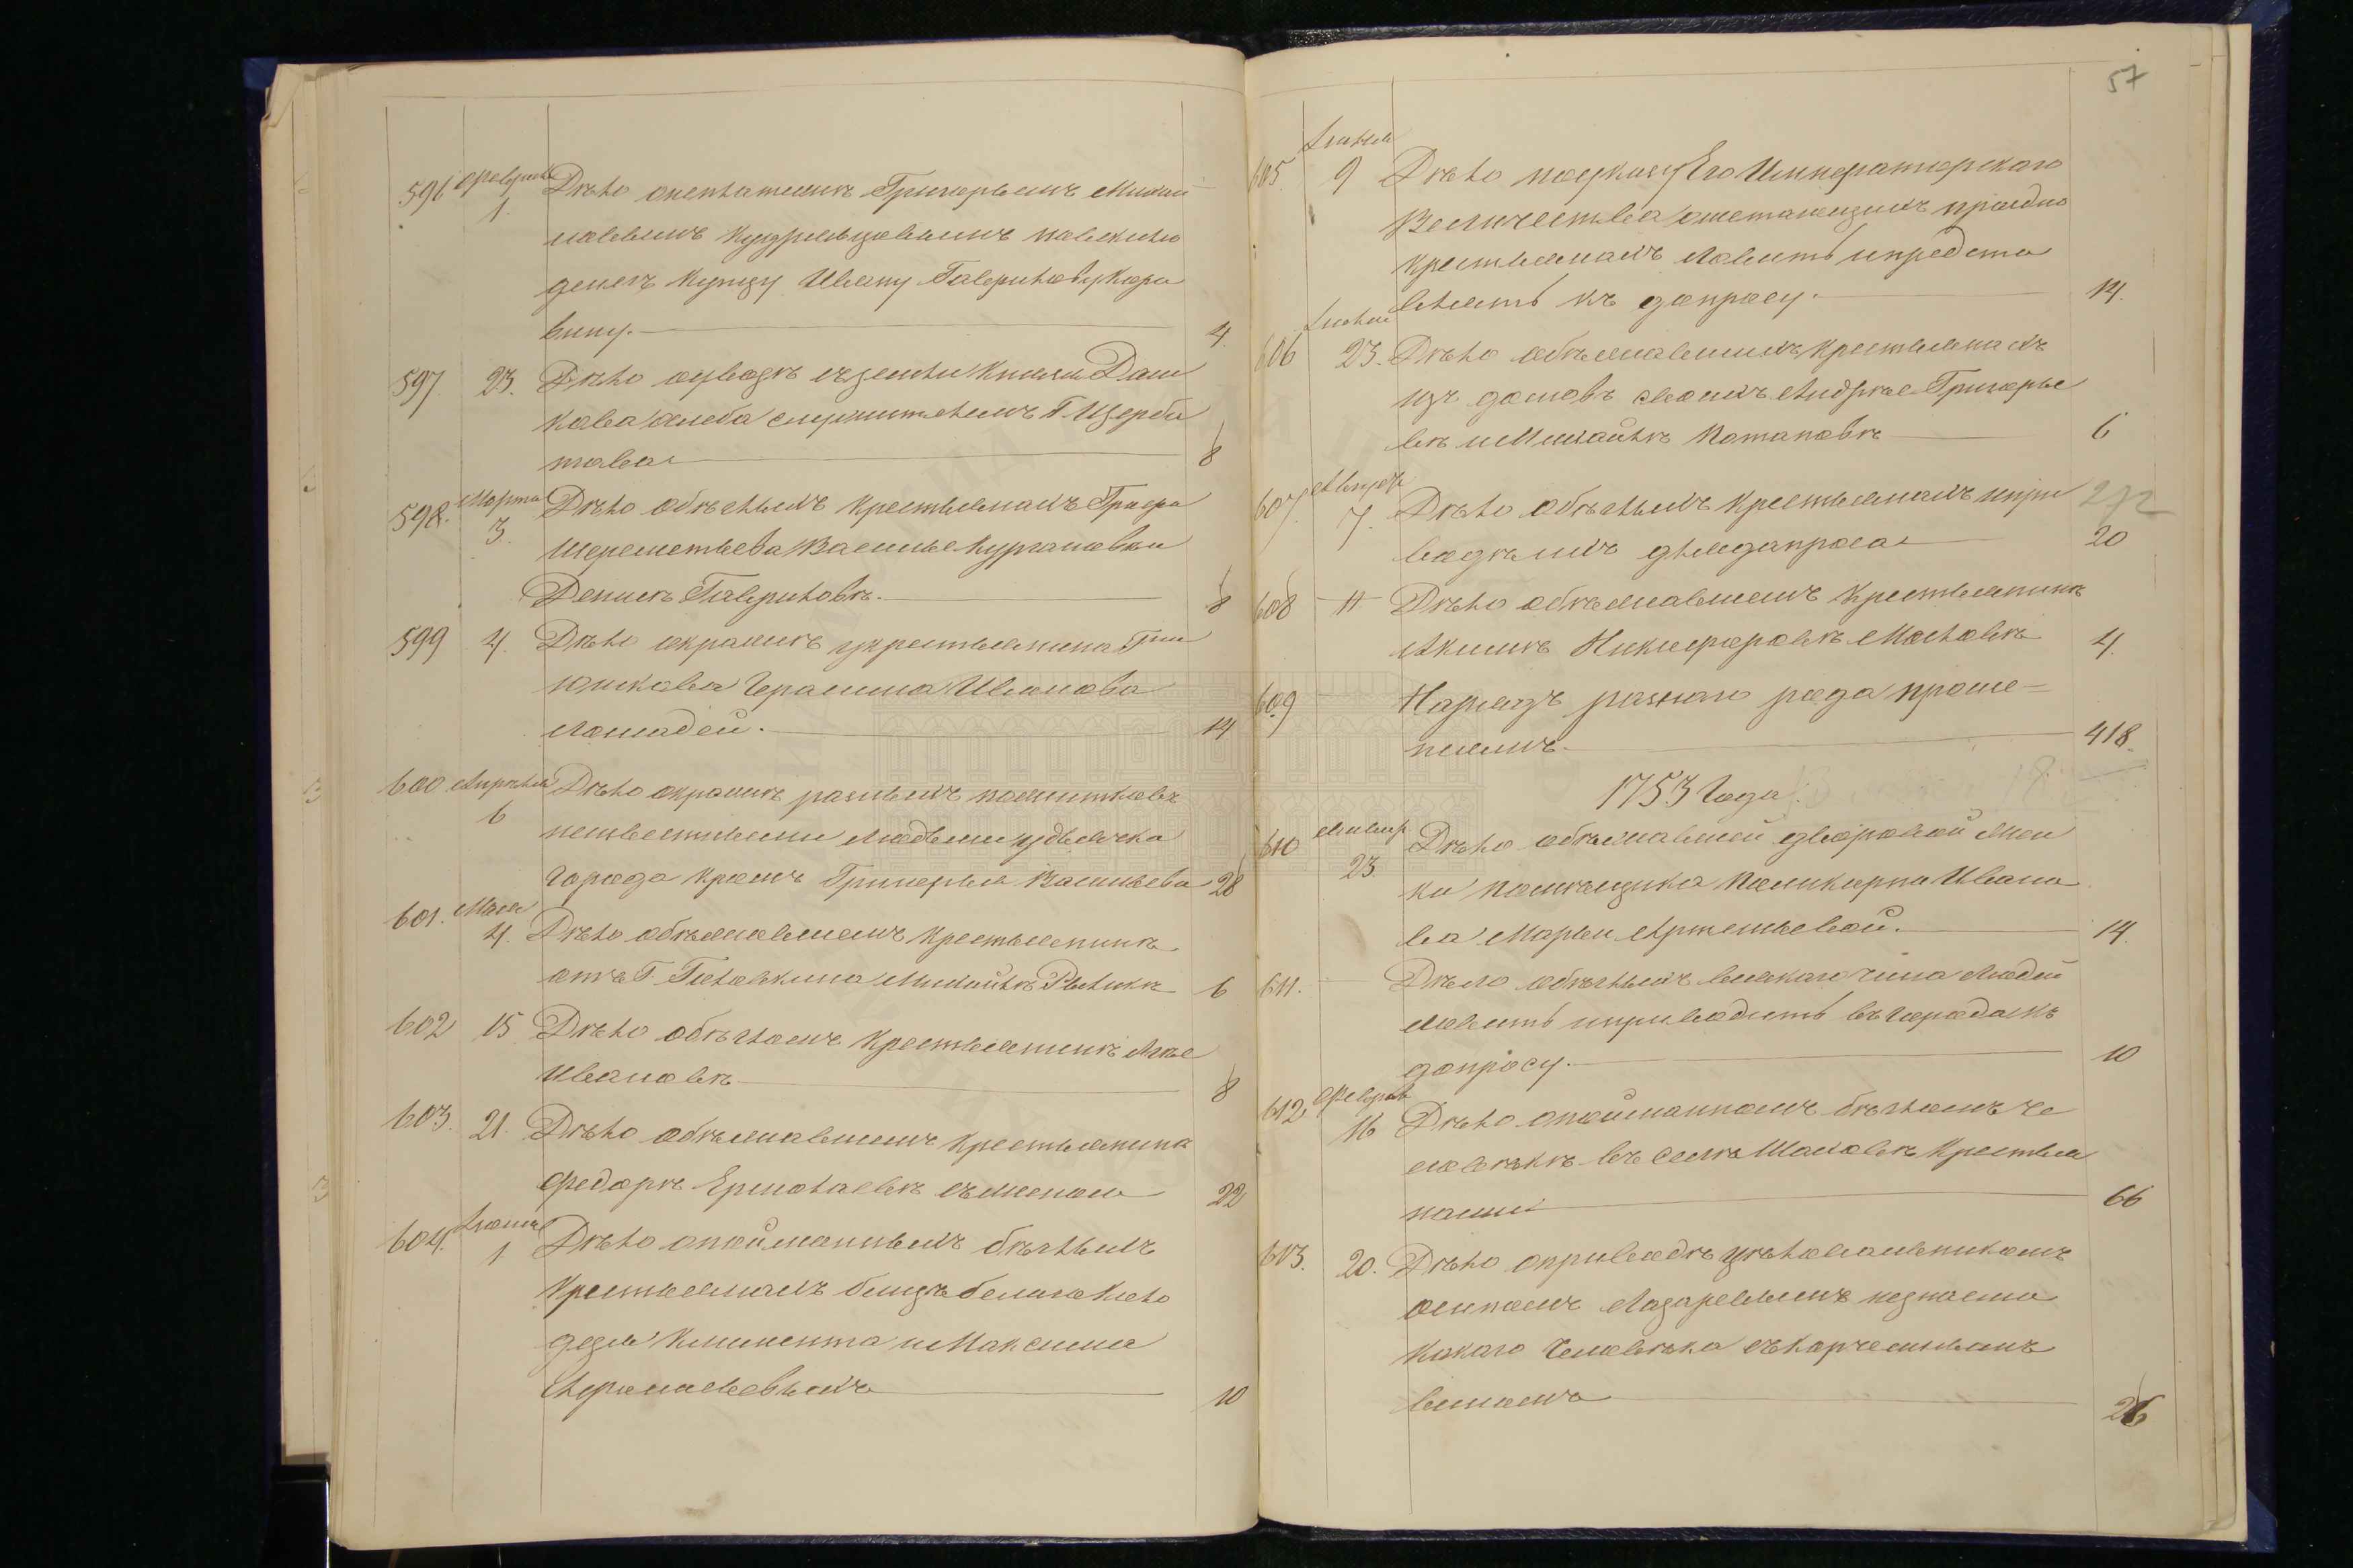 596 Февраля Дѣло онеплатежѣ Григорьемъ Михай
1. ловымъ Кудрявцовымъ
денегъ купцу Ивану Гаврилову Коро
вину. 4
597 23. Дѣло оувозѣ съземли Князя Даш
кова хлеба служителемъ Г. Щерба
това 8
598. Марта Дѣло обѣглыхъ крестьянахъ Графа
3. Шереметьева Василье Кургановѣ и
Денисѣ Гавриловѣ. 8
599 4. Дѣло окражѣ укрестьянина Гна
Юшкова Герасима Иванова
лошадей. 14
600 Апрѣля Дѣло окражѣ разныхъ пожитковъ
6 неизвестными людьми удьячка
города Кромъ Григорья Васильева 28
601. Мая
4. Дѣло объявившемся крестьянинѣ
Г. Головкина Михайлѣ 6
602 15 Дѣло обѣгломъ крестьянинѣ
Ивановѣ 8
603. 21. Дѣло объявившемся крестьянинѣ
Федорѣ Ермолаевѣ съженою 22
604. Июня
1 Дѣло опойманныхъ бѣглыхъ
крестьянахъ близъ белаго Коло
дезя Климента и Максима
10
57
605. Июля
9 Дѣло поуказу Его Императорскаго
Величества ошетающихся праздно
крестьянахъ ловить ипредста
влять къ допросу. 14.
606 Июля
23. Дѣло объявившихся крестьянахъ
изъ домовъ своихъ Андрѣе Григорье
вѣ и Михайлѣ Потаповѣ 6
607. Августа
7. Дѣло обѣглыхъ крестьянахъ ипри 272
водѣ ихъ длядопроса 20
608 11 Дѣло объявившемся крестьянинѣ
Акимѣ Никифоровѣ 4.
609 Нарядъ разнаго рода проше=
ниямъ 418.
1753 Года.
610 Января
23. Дѣло объявившей дворовой жон
ки помѣщика Поликарпа Ивано
ва Марьи Артемьевой. 14.
611. Дѣло обѣглыхъ всякаго чина людей
ловить иприводить въгорода къ
допросу. 10
612. Февраля
16 Дѣло опойманномъ бѣгломъ че
ловѣкѣ въ селѣ Шаховѣ крестья
нами 66
613. 20. Дѣло оприводѣ цѣловальникомъ
Осипомъ Лазаревымъ незнаемо
какаго человѣка скорчемнымъ
виномъ 26